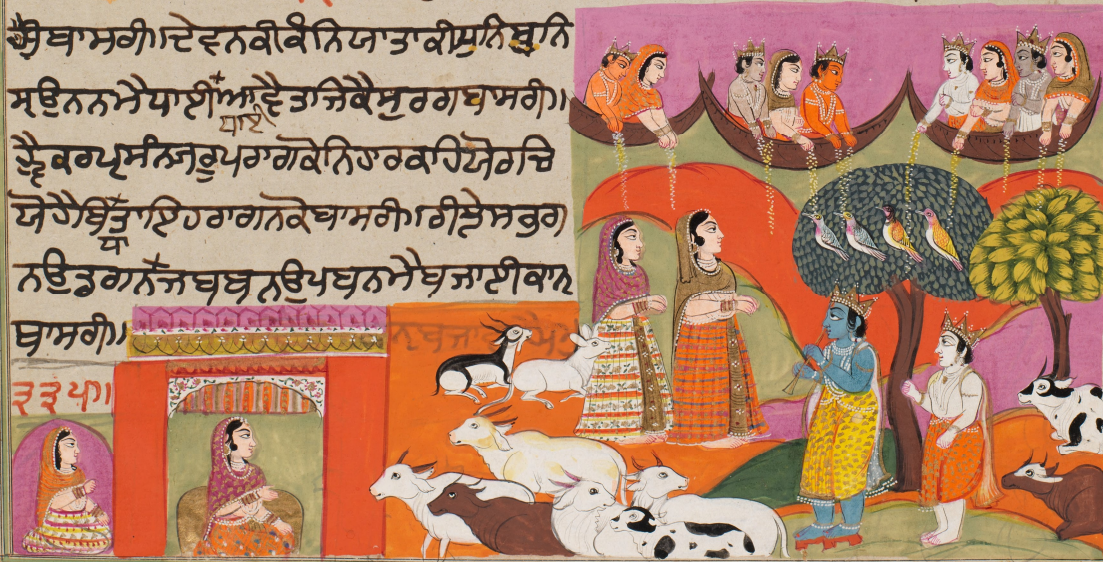 ਬਾਸਰੀ॥ਦੇਵਨ ਕੀ ਕੰਨਿਯਾ ਤਾ ਕੀ ਸੁਨਿ ਸੁਨਿ
ਸ੍ਰਉਨਨ ਮੈ ਧਾਈ ਧਾਏ ਆਵੈ ਤਜਿ ਕੈ ਸੁਰਗ ਬਾਸਰੀ॥
ਹ੍ਵੈ ਕਰ ਪ੍ਰਸੰਨਜ ਰੂਪ ਰਾਗ ਕੋ ਨਿਹਾਰ ਕਹਿਯੋ ਰਚਿ
ਯੋ ਹੈ ਬਿਧਾਤਾ ਇਹ ਰਾਗਨ ਕੋ ਬਾਸਰੀ॥ਰੀਝੇ ਸਭ ਗ
ਨ ਉਡਗਨ ਜਬ ਬਨ ਉਪਬਨ ਮੈ ਬਜਾਈ ਕਾਨ
ਬਾਸਰੀ॥
੩੩੫॥